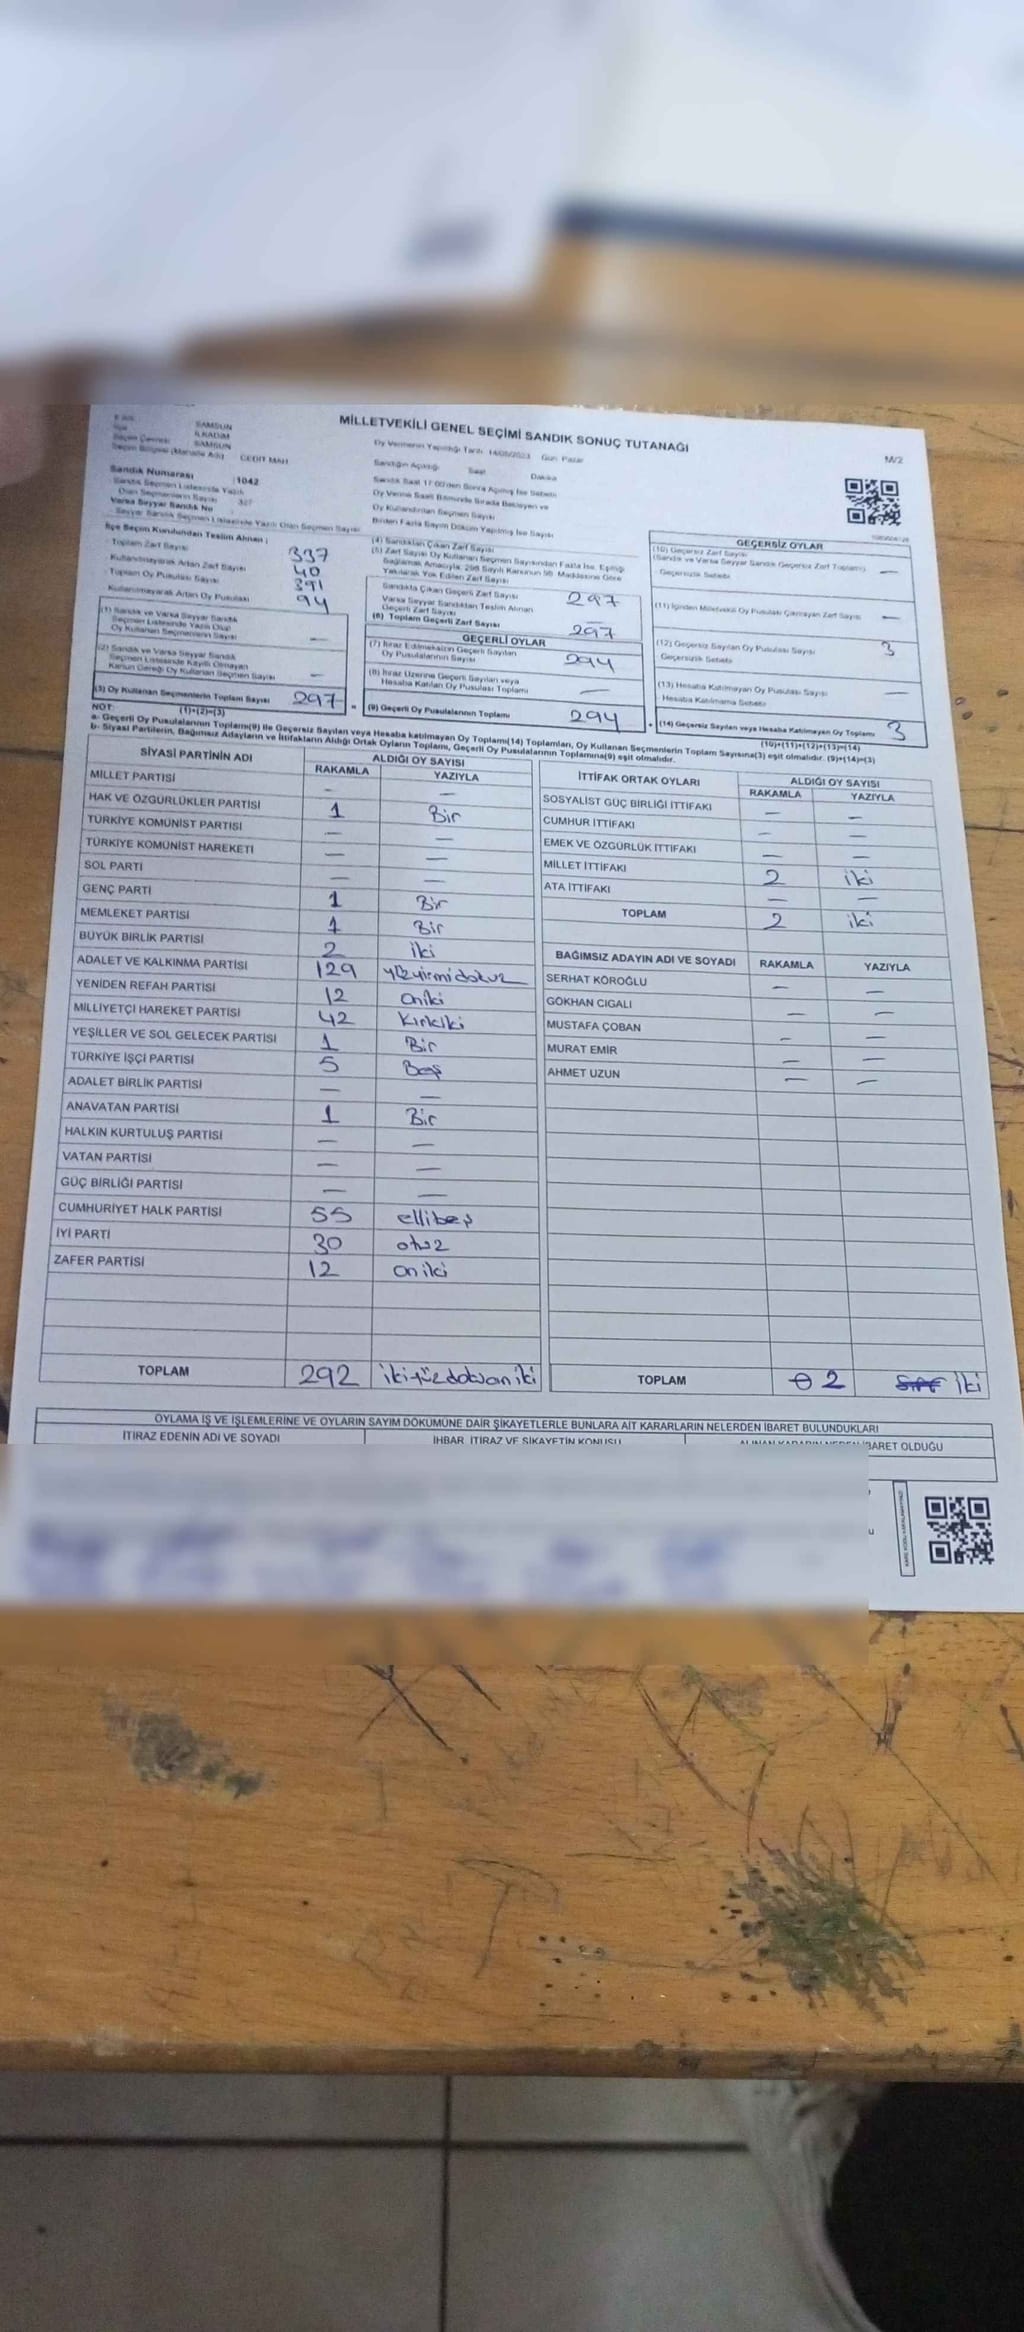 MİLLETVEKİLİ GENEL SEÇİMİ SANDIK SONUÇ TUTANAĞI
M/2
SAMSUN
İLKADIM
SAMSUN
Seçim Bölgesi (Mahalle Adı) CEDİT MAH
Sandık Numarası 1042
Sandık Seçmen Listesinde Yazılı Olan Seçmenlerin Sayısı 327
Varsa Seyyar Sandık No
Seyyar Sandık Seçmen Listesinde Yazılı Olan Seçmen Sayısı
Oy Vermenin Yapıldığı Tarih 14/05/2023 Gün Pazar
Sandığın Açıldığı Saat Dakika
Sandık Saat 17:00'den Sonra Açılmış İse Sebebi
Oy Verme Saati Bitiminde Sırada Bekleyen ve Oy Kullandırılan Seçmen Sayısı
Birden Fazla Sayım Döküm Yapılmış İse Sayısı
İlçe Seçim Kurulundan Teslim Alınan :
Toplam Zarf Sayısı 337
Kullanılmayarak Artan Zarf Sayısı 40
Toplam Oy Pusulası Sayısı 391
Kullanılmayarak Artan Oy Pusulası 94
(1) Sandık ve Varsa Seyyar Sandık Seçmen Listesinde Yazılı Olup Oy Kullanan Seçmenlerin Sayısı —
(2) Sandık ve Varsa Seyyar Sandık Seçmen Listesinde Kayıtlı Olmayan Kanun Gereği Oy Kullanan Seçmen Sayısı —
(3) Oy Kullanan Seçmenlerin Toplam Sayısı 297
(1)+(2)=(3)
(4) Sandıktan Çıkan Zarf Sayısı
(5) Zarf Sayısı Oy Kullanan Seçmen Sayısından Fazla İse, Eşitliği Sağlamak Amacıyla, 298 Sayılı Kanunun 98. Maddesine Göre Yakılarak Yok Edilen Zarf Sayısı
Sandıkta Çıkan Geçerli Zarf Sayısı 297
Varsa Seyyar Sandıktan Teslim Alınan Geçerli Zarf Sayısı —
(6) Toplam Geçerli Zarf Sayısı 297
GEÇERLİ OYLAR
(7) İtiraz Edilmeksizin Geçerli Sayılan Oy Pusulalarının Sayısı 294
(8) İtiraz Üzerine Geçerli Sayılan veya Hesaba Katılan Oy Pusulası Toplamı —
(9) Geçerli Oy Pusulalarının Toplamı 294
GEÇERSİZ OYLAR
(10) Geçersiz Zarf Sayısı (Sandık ve Varsa Seyyar Sandık Geçersiz Zarf Toplamı) —
Geçersizlik Sebebi
(11) İçinden Milletvekili Oy Pusulası Çıkmayan Zarf Sayısı —
(12) Geçersiz Sayılan Oy Pusulası Sayısı 3
Geçersizlik Sebebi
(13) Hesaba Katılmayan Oy Pusulası Sayısı —
Hesaba Katılmama Sebebi
(14) Geçersiz Sayılan veya Hesaba Katılmayan Oy Toplamı 3
(10)+(11)+(12)+(13)=(14)
NOT:
a- Geçerli Oy Pusulalarının Toplamı(9) ile Geçersiz Sayılan veya Hesaba katılmayan Oy Toplamı(14) Toplamları, Oy Kullanan Seçmenlerin Toplam Sayısına(3) eşit olmalıdır. (9)+(14)=(3)
b- Siyasi Partilerin, Bağımsız Adayların ve İttifakların Aldığı Ortak Oyların Toplamı, Geçerli Oy Pusulalarının Toplamına(9) eşit olmalıdır.
SİYASİ PARTİNİN ADI ALDIĞI OY SAYISI
RAKAMLA YAZIYLA
MİLLET PARTİSİ — —
HAK VE ÖZGÜRLÜKLER PARTİSİ 1 Bir
TÜRKİYE KOMÜNİST PARTİSİ — —
TÜRKİYE KOMÜNİST HAREKETİ — —
SOL PARTİ — —
GENÇ PARTİ 1 Bir
MEMLEKET PARTİSİ 1 Bir
BÜYÜK BİRLİK PARTİSİ 2 iki
ADALET VE KALKINMA PARTİSİ 129 yüzyirmidokuz
YENİDEN REFAH PARTİSİ 12 oniki
MİLLİYETÇİ HAREKET PARTİSİ 42 Kırkiki
YEŞİLLER VE SOL GELECEK PARTİSİ 1 Bir
TÜRKİYE İŞÇİ PARTİSİ 5 Beş
ADALET BİRLİK PARTİSİ — —
ANAVATAN PARTİSİ 1 Bir
HALKIN KURTULUŞ PARTİSİ — —
VATAN PARTİSİ — —
GÜÇ BİRLİĞİ PARTİSİ — —
CUMHURİYET HALK PARTİSİ 55 ellibeş
İYİ PARTİ 30 otuz
ZAFER PARTİSİ 12 oniki
TOPLAM 292 ikiyüzdoksaniki
İTTİFAK ORTAK OYLARI ALDIĞI OY SAYISI
RAKAMLA YAZIYLA
SOSYALİST GÜÇ BİRLİĞİ İTTİFAKI — —
CUMHUR İTTİFAKI — —
EMEK VE ÖZGÜRLÜK İTTİFAKI — —
MİLLET İTTİFAKI 2 iki
ATA İTTİFAKI — —
TOPLAM 2 iki
BAĞIMSIZ ADAYIN ADI VE SOYADI RAKAMLA YAZIYLA
SERHAT KÖROĞLU — —
GÖKHAN CIGALI — —
MUSTAFA ÇOBAN — —
MURAT EMİR — —
AHMET UZUN — —
TOPLAM 2 iki
OYLAMA İŞ VE İŞLEMLERİNE VE OYLARIN SAYIM DÖKÜMÜNE DAİR ŞİKAYETLERLE BUNLARA AİT KARARLARIN NELERDEN İBARET BULUNDUKLARI
İTİRAZ EDENİN ADI VE SOYADI İHBAR, İTİRAZ VE ŞİKAYETİN KONUSU İBARET OLDUĞU